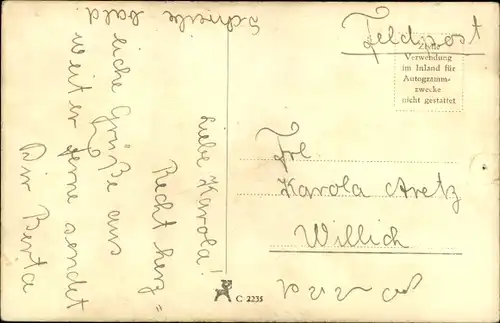 Feldpost
Zivile
Verwendung
im Inland für
Autogramm-
zwecke
nicht gestattet
Frl
Karola Aretz
Willich
C 2235
Liebe Karola!
Recht herz=
liche Grüße aus
weiter Ferne sendet
Dir Berta
Schreibe bald